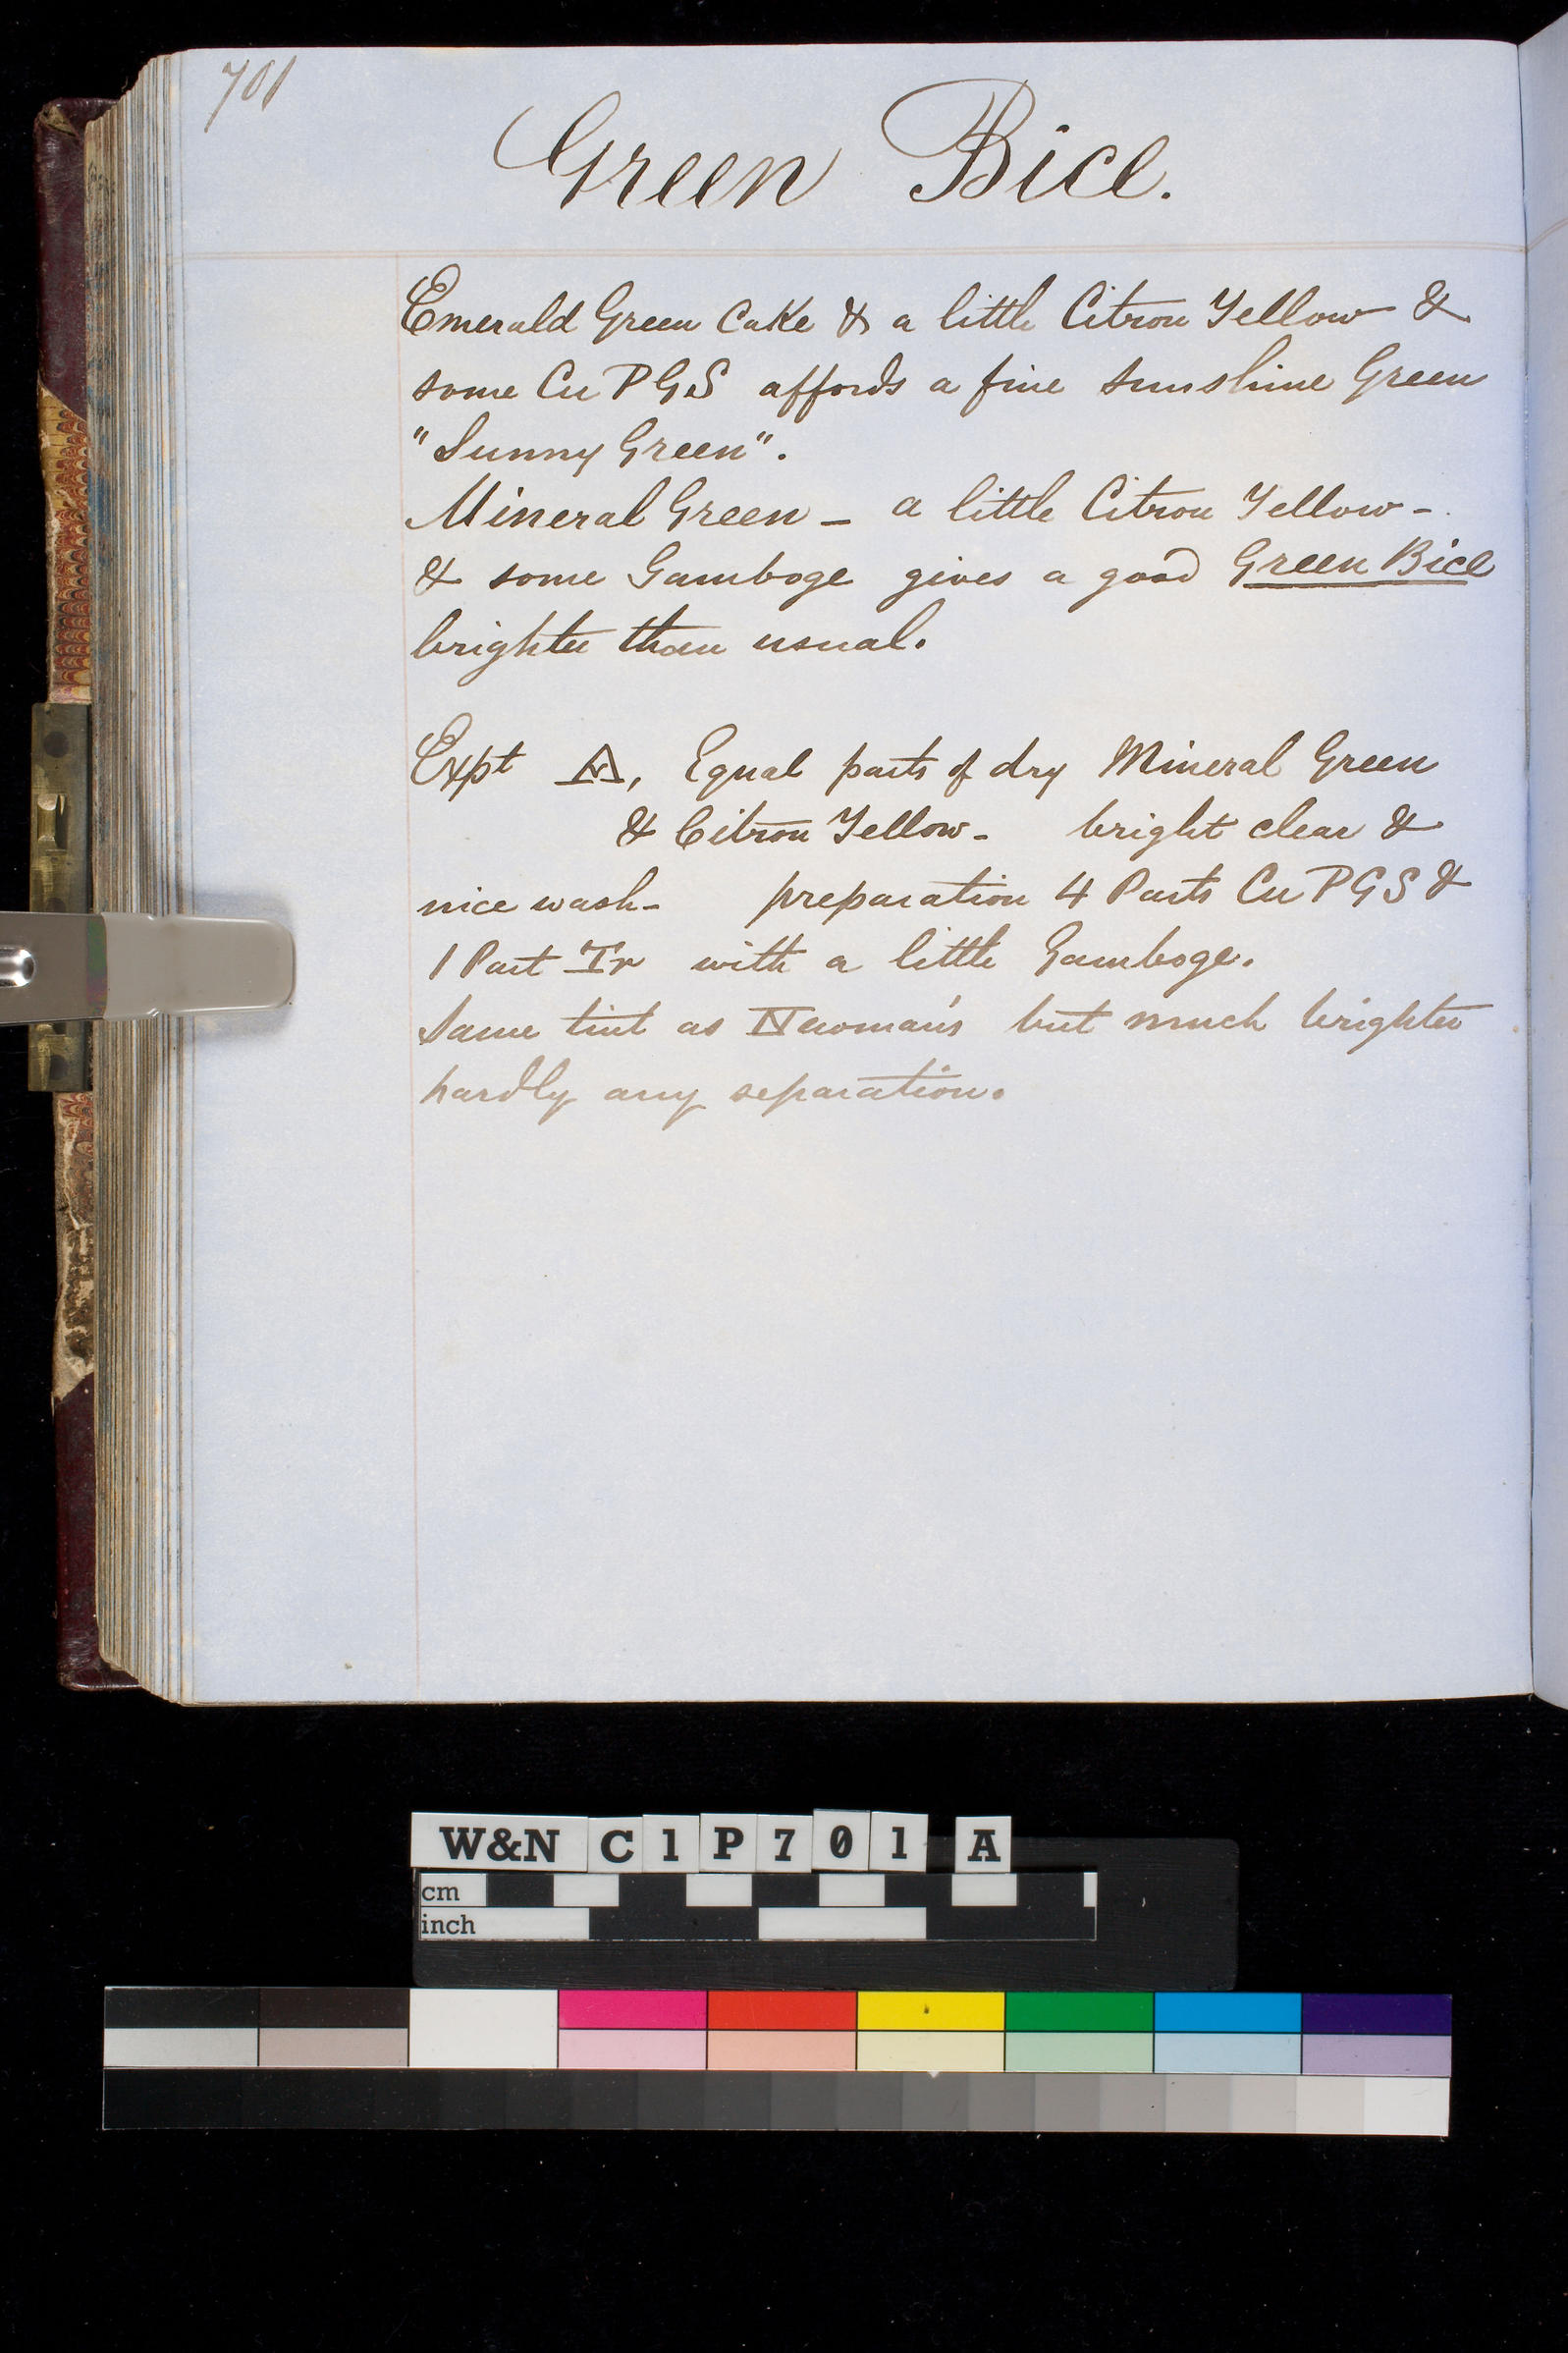 701
Green Bice.
Emerald Green Cake & a little Citron Yellow &
some Cu P G S affords a fine sunshine Green
"Sunny Green".
Mineral Green - a little Citron Yellow -
& some Gamboge gives a good Green Bice
brighter than usual.
Expt A, Equal parts of dry Mineral Green
& Citron Yellow - bright clear &
nice wash - preparation 4 Parts Cu P G S &
1 Part Tr with a little Gamboge.
Same tint as Newman's but much brighter
hardly any separation.
W&N C1P701 A
cm
inch